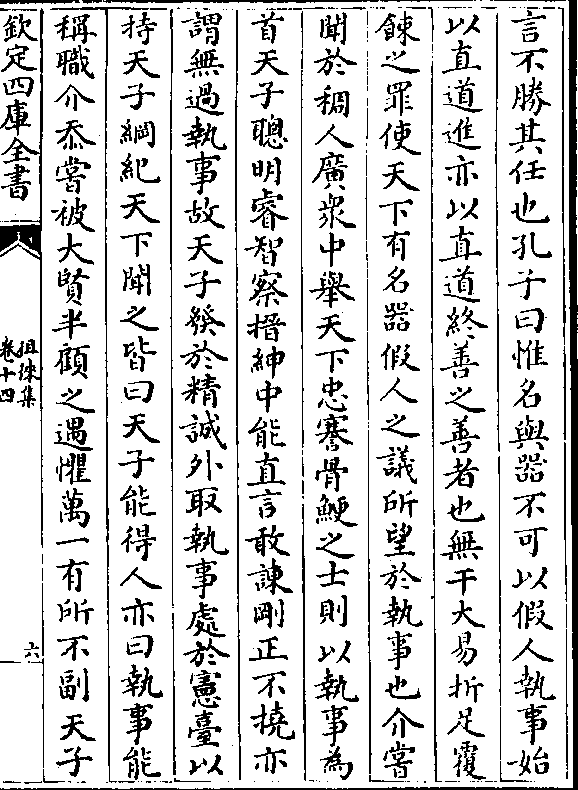 言不勝其任也孔子曰惟名與器不可以假人執事始
以直道進亦以直道終善之善者也無干大易折足覆
餗之罪使天下有名器假人之議所望於執事也介嘗
聞於稠人廣衆中舉天下忠謇骨鯁之士則以執事為
首天子聰明睿智察搢紳中能直言敢諫剛正不撓亦
謂無過執事故天子發於精誠外取執事處於憲臺以
持天子綱紀天下聞之皆曰天子能得人亦曰執事能
稱職介忝嘗被大賢半顧之遇懼萬一有所不副天子
欽定四庫全書
徂徠集
卷十四
六